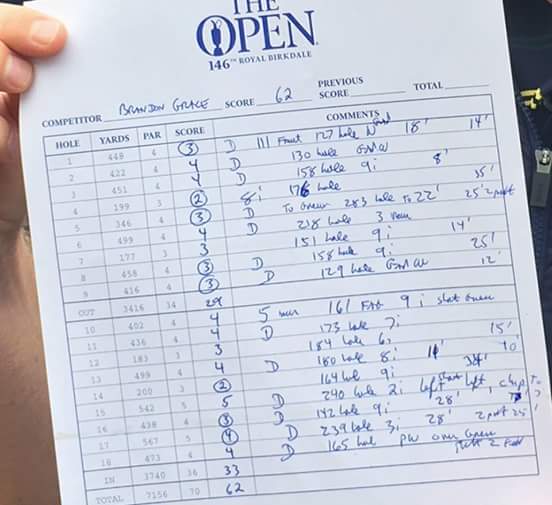 THE
OPEN
146TH ROYAL BIRKDALE
COMPETITOR BRANDON GRACE SCORE 62 PREVIOUS SCORE TOTAL
HOLE YARDS PAR SCORE COMMENTS
1 448 4 3 D 111 Front 127 hole 18' 14'
2 422 4 4 D 130 hole
3 451 4 4 D 158 hole 9i 8'
4 199 3 2 8i 176 hole 35'
5 346 4 3 D To Green 283 hole To 22' 25' 2 putt
6 499 4 4 D 218 hole 3
7 177 3 3 151 hole 9i 14'
8 458 4 3 D 158 hole 9i 25'
9 416 4 3 D 129 hole 12'
OUT 3416 34 29
10 402 4 4 5 161 9i Green
11 436 4 4 D 173 hole 7i
12 183 3 3 184 hole 6i
13 499 4 4 D 180 hole 8i 15'
14 200 3 2 164 hole 9i
15 542 5 5 D 240 hole 2i left left, chip To
16 438 4 3 D 142 hole 9i 28'
17 567 5 4 D 239 hole 3i 28' 2 putt 25'
18 473 4 4 D 165 hole PW over Green putt 2 putt
IN 3740 36 33
TOTAL 7156 70 62